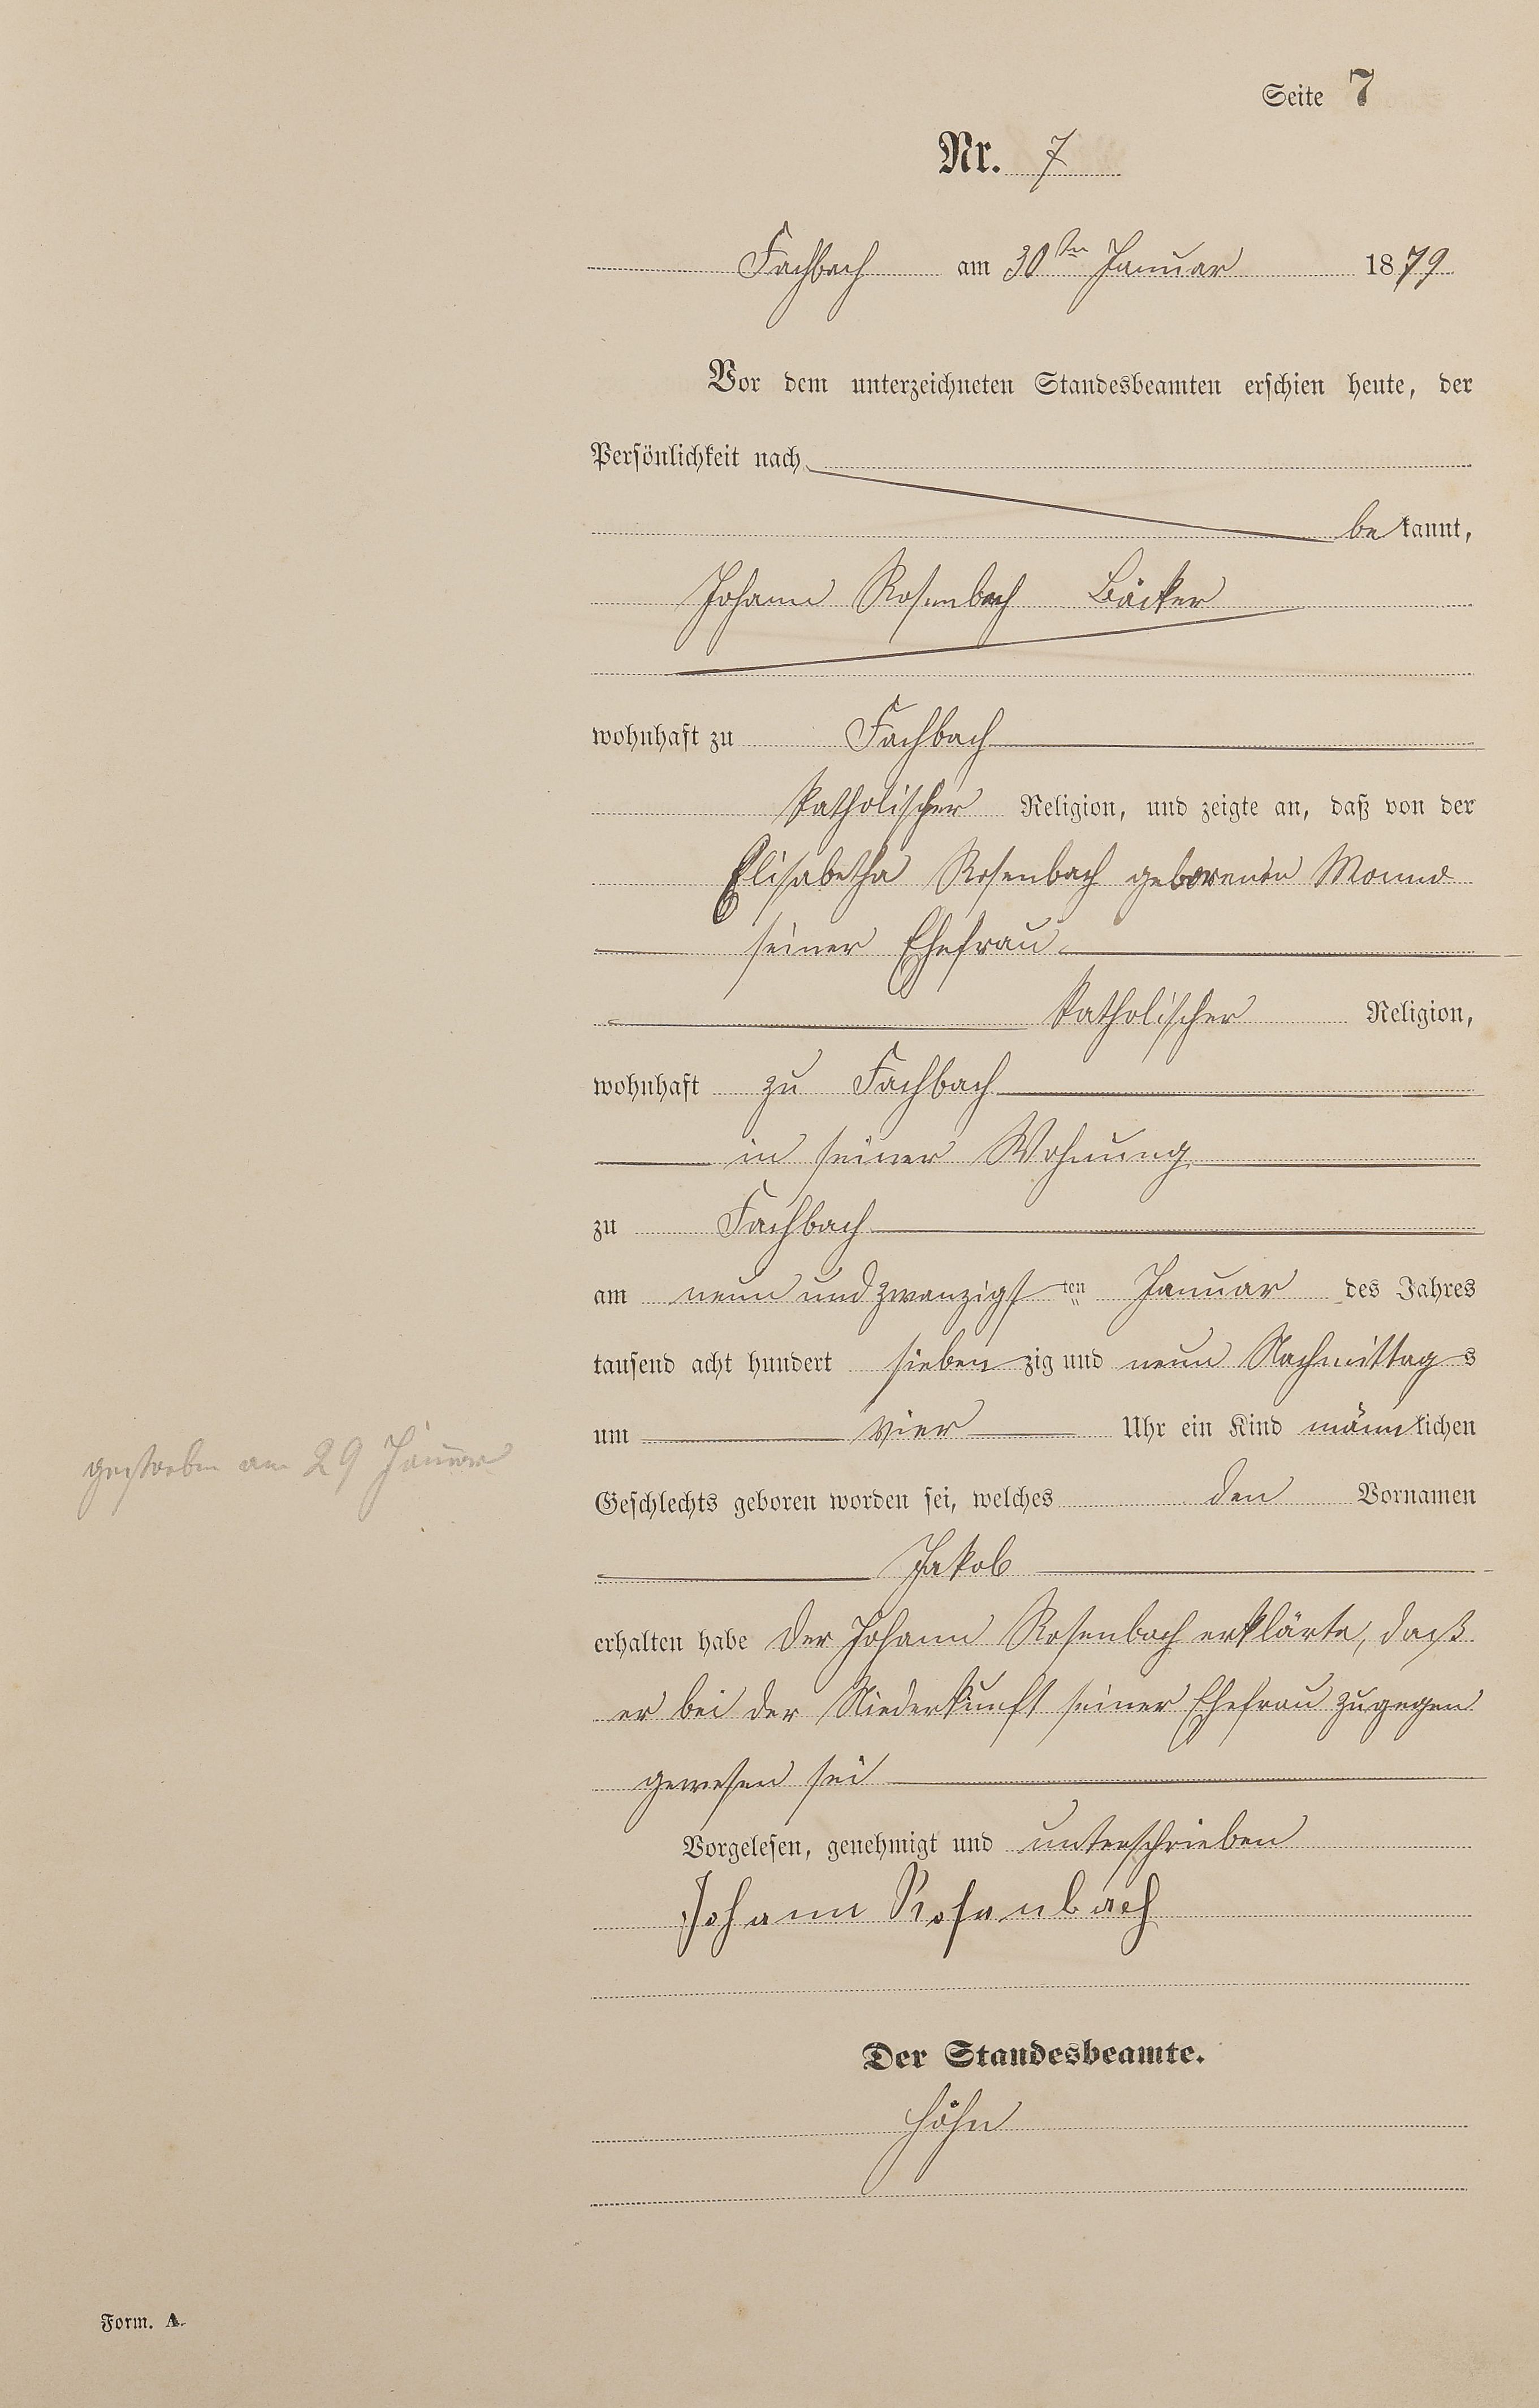 Seite 7
Nr. 7
Fachbach am 30ten Januar 1879
Vor dem unterzeichneten Standesbeamten erschien heute, der
Persönlichkeit nach
bekannt,
Johann Rosenbach Bäcker
wohnhaft zu Fachbach
katholischer Religion, und zeigte an, daß von der
Elisabetha Rosenbach geborenen
seiner Ehefrau
katholischer Religion,
wohnhaft zu Fachbach
in seiner Wohnung
zu Fachbach
am neun und zwanzigsten Januar des Jahres
tausend acht hundert siebenzig und neun Nachmittags
um vier Uhr ein Kind männlichen
gestorben am 29 Januar
Geschlechts geboren worden sei, welches den Vornamen
Jakob
erhalten habe Der Johann Rosenbach erklärte, daß
er bei der Niederkunft seiner Ehefrau zugegen
gewesen sei
Vorgelesen, genehmigt und unterschrieben
Johann Rosenbach
Der Standesbeamte.
Höhn
Form. A.